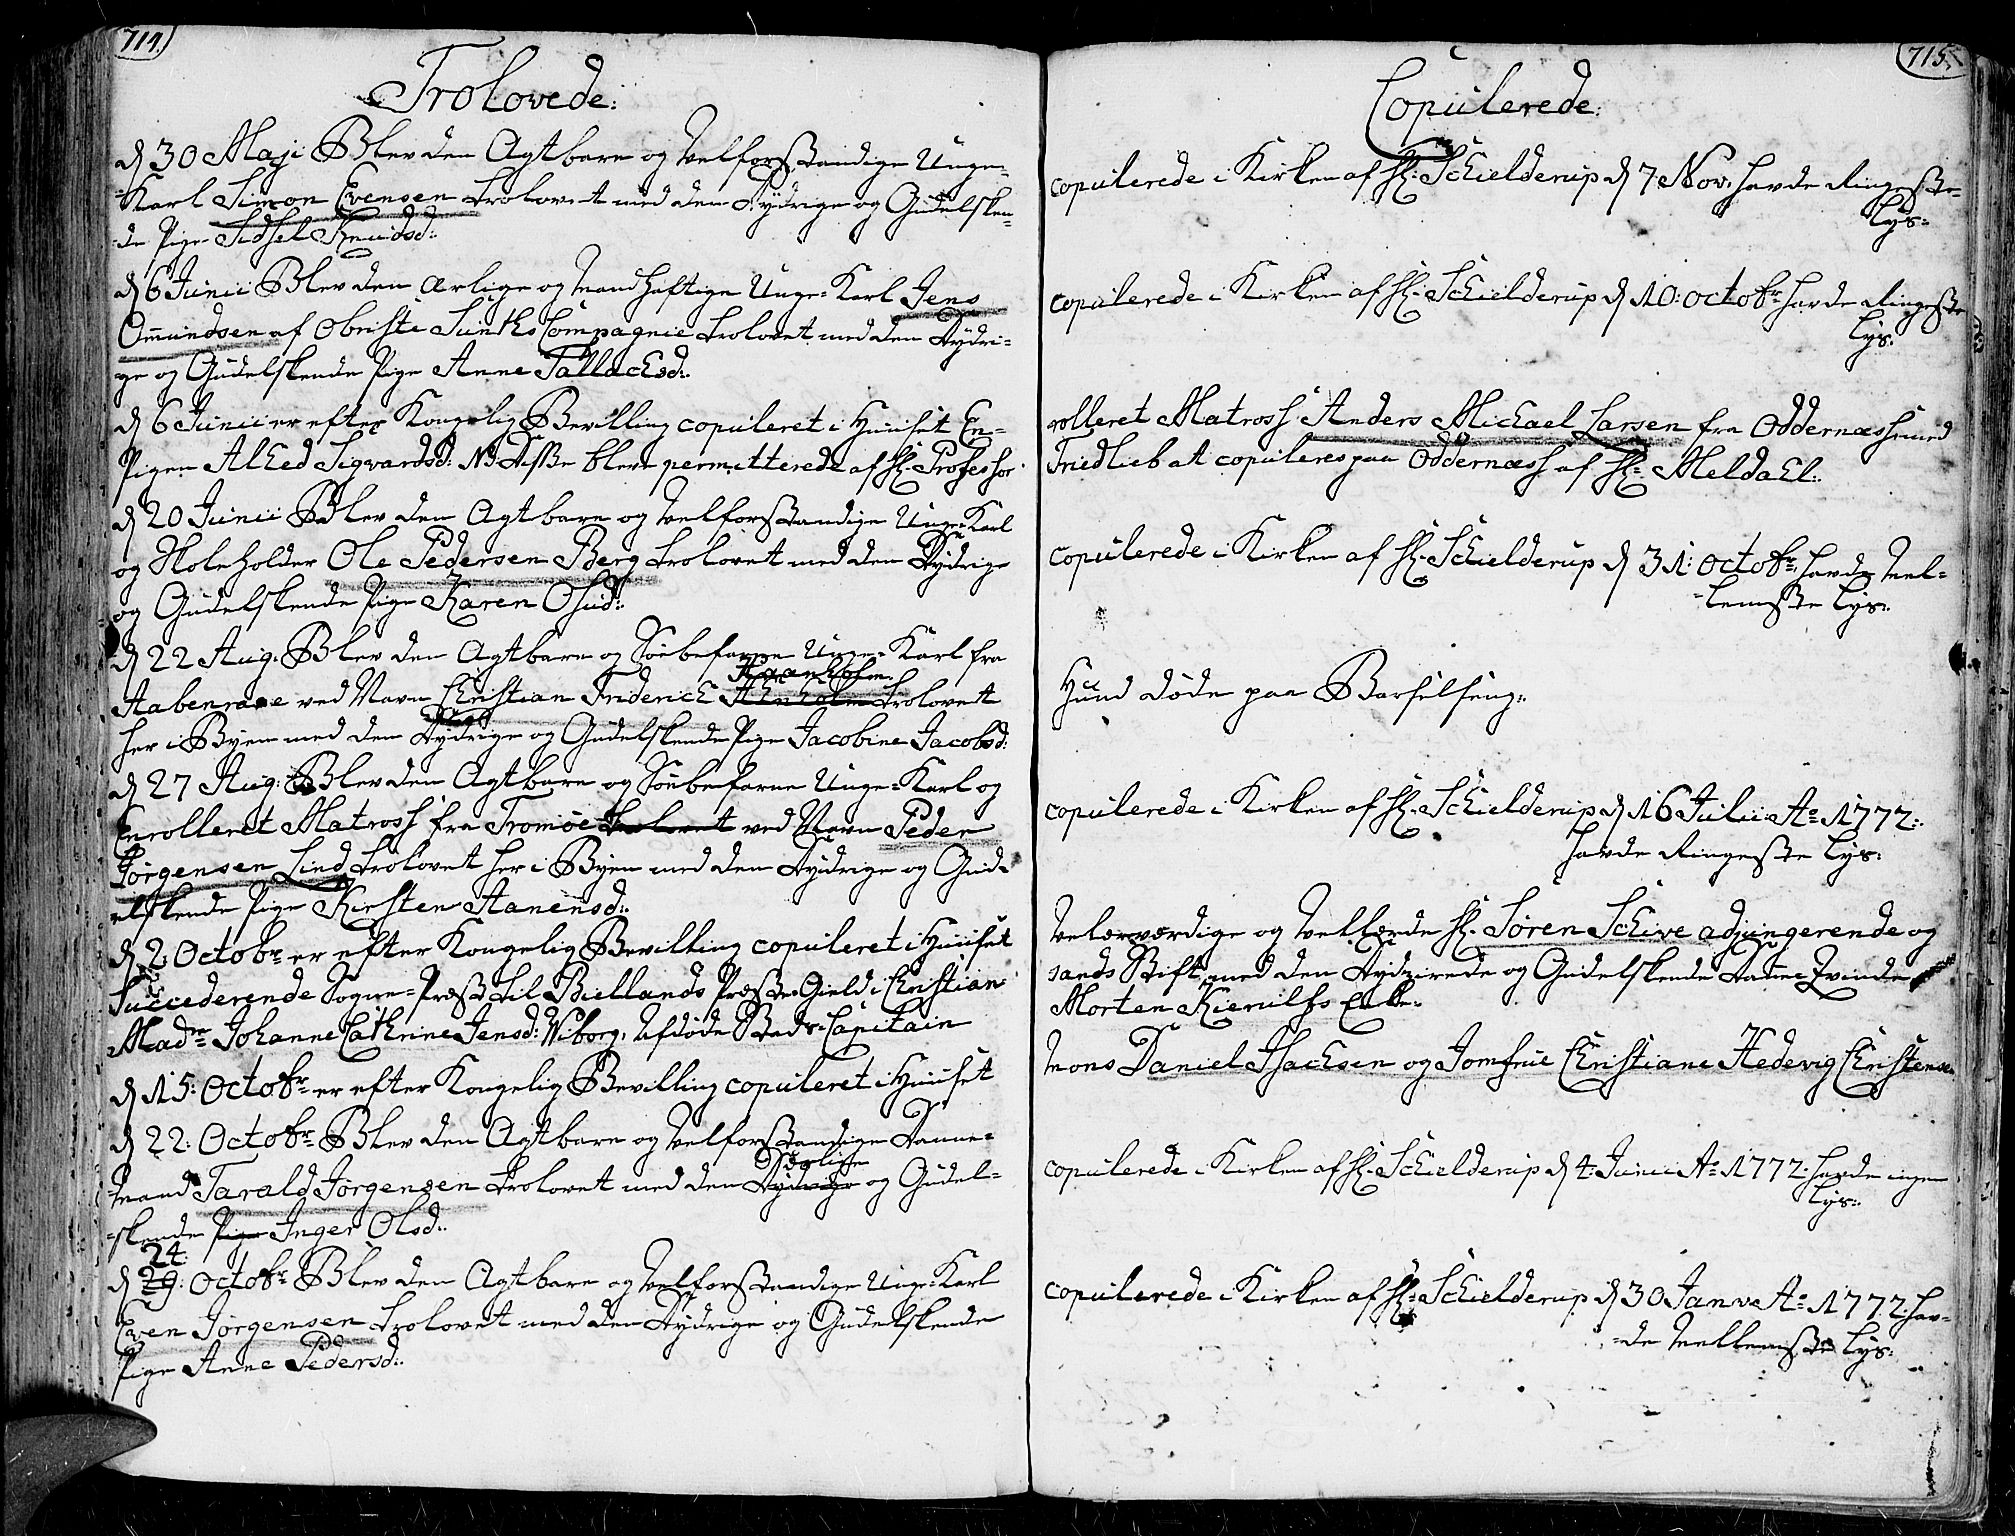 714.
Trolovede:
d 30 Maji Blev den Agtbare og velforstandige Unge-
-Karl Simon Evensen trolovet med den Dydrige og Gudelsken-
-de Pige Sidsel Knudsd:
d 6 Junii Blev den Ærlige og Mandhaftige Unge-Karl Jens
Omundsen af Obriste Sundts Compagnie trolovet med den Dydri-
ge og Gudelskende Pige Anne Tallachsd:
d 6 Junii er efter Kongelig Bevilling copuleret i Huuset En-
Pigen Alhed Sigvardsd: NB Disse bleve permitterede af Hr Professor
d 20 Junii Blev den Agtbare og Velforstandige Unge-Karl
og Skoleholder Ole Pedersen Berg trolovet med den Dydrige
og Gudelskende Pige Karen Olsd:
d 22 Aug: Blev den Agtbare og Søebefarne Unge-Karl fra
Haanholm
Aabenraae ved Navn Christian Friderich trolovet
her i Byen med den Dydrige og Gudelskende Pige Jacobine Jacobsd:
d 27 Aug: Blev den Agtbare og Søebefarne Unge-Karl og
Enrolleret Matross fra Tromøe trolovet ved Navn Peder
Jørgensen Lind trolovet her i Byen med den Dydrige og Gud-
elskende Pige Kirsten Aanensd:
d 2 Octobr er efter Kongelig Bevilling copuleret i Huuset
Succederende Sogne-Præst til Biellands Præste-Gield i Christian-
Madme Johanne Cathrine Jensd: Wiborg, Afdøde Stads-Capitain
d 15: Octobr er efter Kongelig Bevilling copuleret i Huuset
d 22: Octobr Blev den Agtbare og Velforstandige Danne-
ærlige
Mand Tarald Jørgensen trolovet med den Dydrige og Gudel-
-skende Pige Inger Olsd:
24:
d 29: Octobr Blev den Agtbare og Velforstandige Unge-Karl
Even Jørgensen trolovet med den Dydrige og Gudelskende
Pige Anne Pedersd:
715.
Copulerede:
copulerede i Kirken af Hr: Schielderup d 7 Nov: havde Ringeste
Lys:
copulerede i Kirken af Hr: Schielderup d 10: Octobr havde Ringeste
Lys:
rolleret Matross Anders Michael Larsen fra Oddernæss med
Friedlieb at copuleres paa Oddernæss af Hr: Meldahl:
copulerede i Kirken af Hr: Schielderup d 31: Octobr: havde Mel-
-lemste Lys:
Hund døde paa Barselseng:
copulerede i Kirken af Hr: Schielderup d 16 Julii Ao 1772:
havde Ringeste Lys:
Velærværdige og Vellærde Hr: Søren Schive adjungerende og
sands Stift med den Dydzirede og Gudelskende Danne Qvinde
Morten Kierulfs Enke:
Mons Daniel Isachsen og Jomfrue Christiane Hedevig Christensen
copulerede i Kirken af Hr: Schielderup d 4: Junii Ao 1772: havde ingen
Lys:
copulerede i Kirken af Hr: Schielderup d 30 Janv Ao 1772: hav-
-de Mellemste Lys: